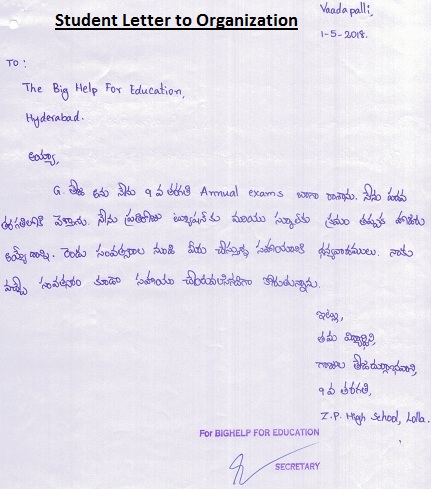 Student Letter to Organization
Vaadapalli,
1-5-2018.
To:
The Big Help For Education,
Hyderabad.
అయ్యా,
G. తేజ అను నేను 9 వ తరగతి Annual exams బాగా రాశాను. నేను పదవ
తరగతిలోకి వెళ్తాను. నేను ప్రతిరోజు ట్యూషన్ కు మరియు స్కూలుకు క్రమం తప్పక
రెండు సంవత్సరాల నుండి మీరు చేస్తున్న సహాయానికి ధన్యవాదములు. నాకు
వచ్చే సంవత్సరం కూడా సహాయం కోరుతున్నాను.
ఇట్లు,
తమ విద్యార్థిని,
9 వ తరగతి,
Z.P. High School, Lolla.
For BIGHELP FOR EDUCATION
SECRETARY